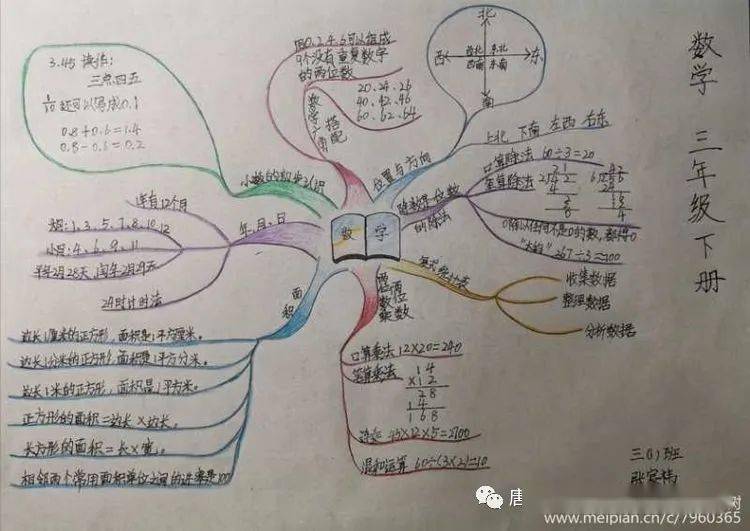 数学 三年级下册
数学
小数的初步认识
3.45 读作:
三点四五
1/10 还可以写成0.1
0.8+0.6=1.4
0.8-0.6=0.2
数学广角 搭配
用0、2、4、6可以组成
9个没有重复数字
的两位数
20、24、26
40、42、46
60、62、64
位置与方向
北
西北 东北
西 东
西南 东南
南
上北 下南 左西 右东
除数是一位数
的除法
口算除法 60÷3=20
笔算除法
0除以任何不是0的数,都得0
"大约" 267÷3≈100
复式统计表
收集数据
整理数据
分析数据
两位数
两位数
乘
口算乘法 12×20=240
笔算乘法
14
×12
28
14
168
连乘 45×12×5=2700
混和运算 60÷(3×2)=10
面积
边长1厘米的正方形,面积是1平方厘米。
边长1分米的正方形,面积是1平方分米。
边长1米的正方形,面积是1平方米。
正方形的面积=边长×边长。
长方形的面积=长×宽。
相邻两个常用面积单位之间的进率是100
年、月、日
一年有12个月
大月:1、3、5、7、8、10、12
小月:4、6、9、11
平年2月28天,闰年2月29天
24时计时法
三(1)班
唐
www.meipian.cn/c/7960365